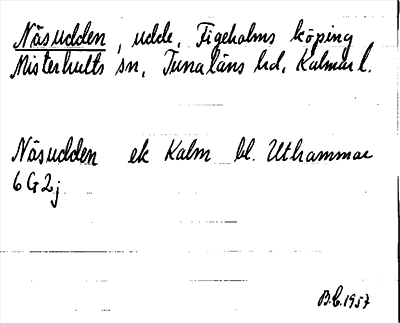 Näsudden, udde, Figeholms köping
Misterhults sn, Tunaläns hd, Kalmar l.
Näsudden ek Kalm bl. Uthammar
6G2j
B.C. 1957